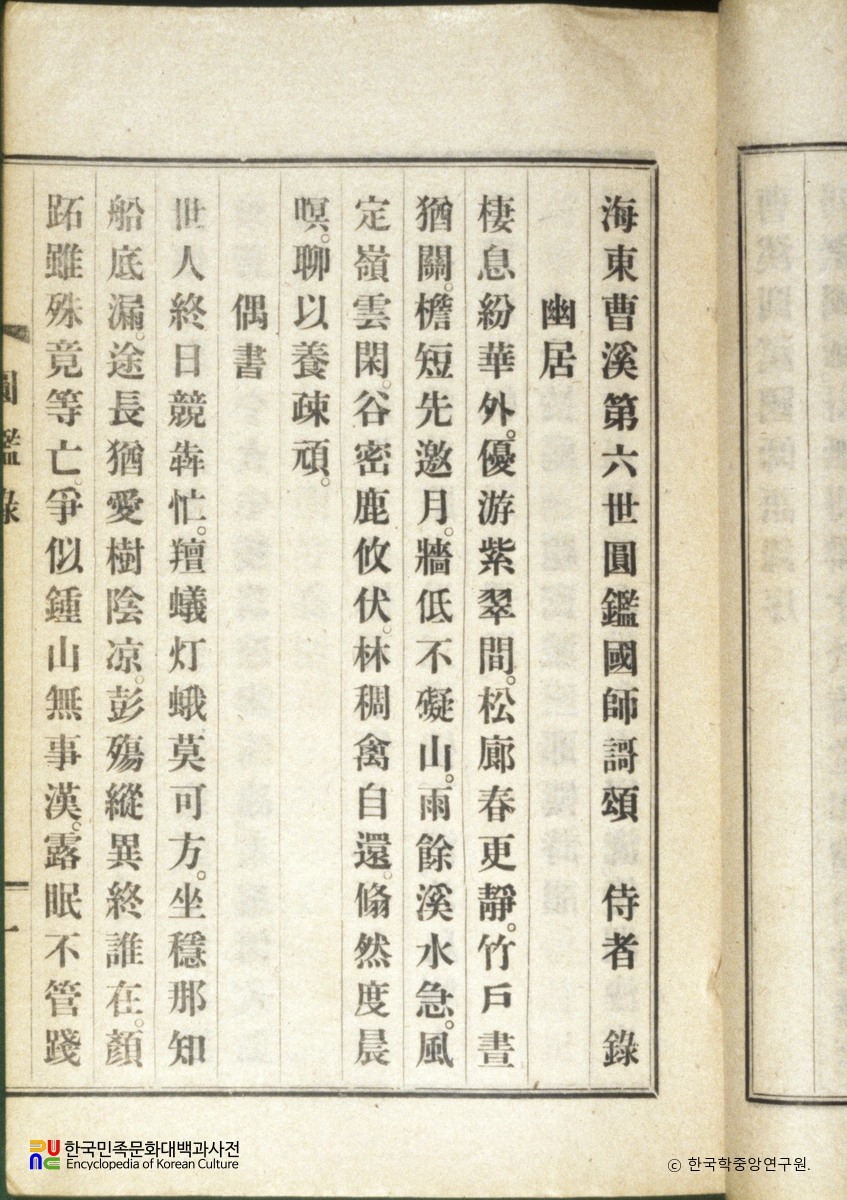 海東曹溪第六世圓鑑國師謌頌　侍者　錄
幽居
棲息紛華外。優游紫翠間。松廊春更靜。竹戶晝
猶關。檐短先邀月。牆低不礙山。雨餘溪水急。風
定嶺雲閑。谷密鹿攸伏。林稠禽自還。翛然度晨
暝。聊以養疎頑。
偶書
世人終日競犇忙。羶蟻灯蛾莫可方。坐穩那知
船底漏。途長猶愛樹陰凉。彭殤縱異終誰在。顏
跖雖殊竟等亡。爭似鍾山無事漢。露眠不管踐
圓鑑錄
한국민족문화대백과사전
Encyclopedia of Korean Culture
© 한국학중앙연구원.